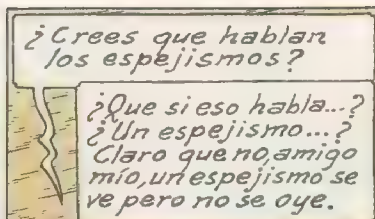 ¿Crees que hablan
los espejismos?
¿Que si eso habla...?
¿Un espejismo...?
Claro que no, amigo
mío, un espejismo se
ve pero no se oye.